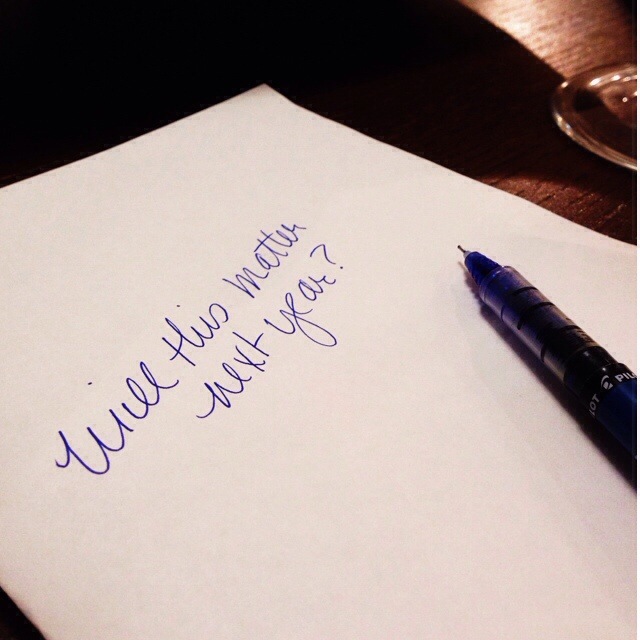 Will this matter
next year?
PILOT PIL